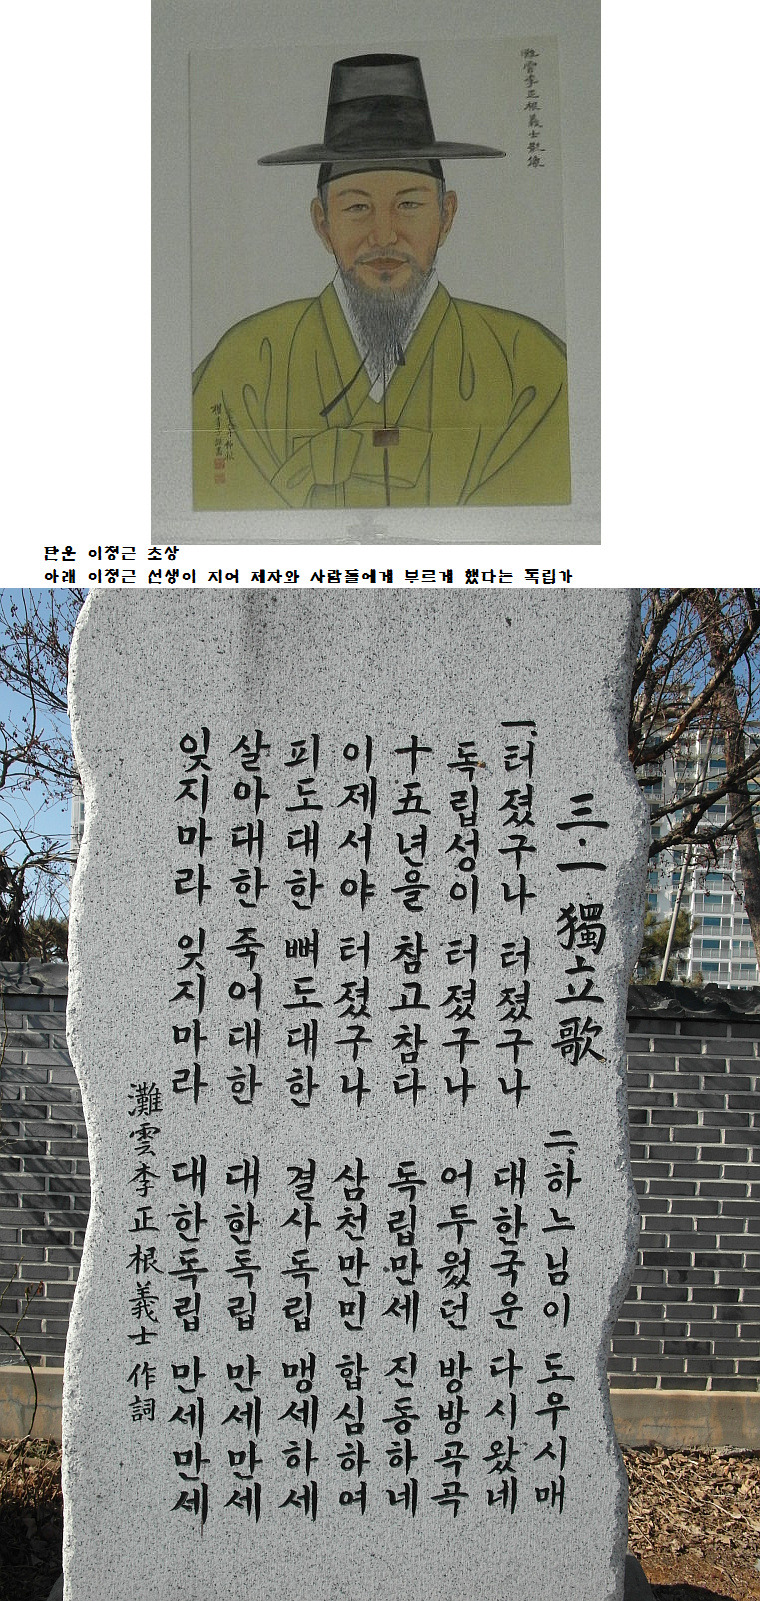 灘雲李正根義士影像
탄운 이정근 초상
아래 이정근 선생이 지어 제자와 사람들에게 부르게 했다는 독립가
三·一 獨立歌
一, 터졌구나 터졌구나
독립성이 터졌구나
十五년을 참고참다
이제서야 터졌구나
피도대한 뼈도대한
살아대한 죽어대한
잊지마라 잊지마라
二, 하느님이 도우시매
대한국운 다시왔네
어두웠던 방방곡곡
독립만세 진동하네
삼천만민 합심하여
결사독립 맹세하세
대한독립 만세만세
대한독립 만세만세
灘雲李正根義士 作詞